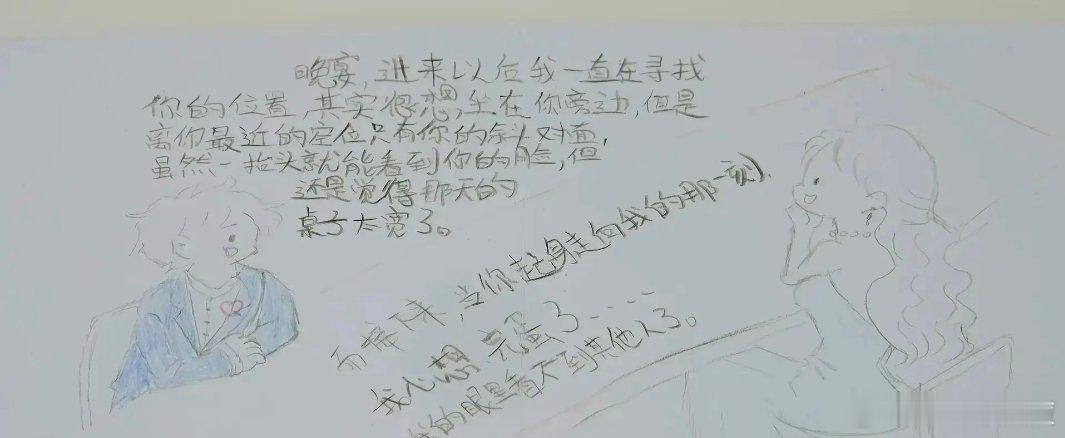 晚宴,进来以后我一直在寻找
你的位置,其实很想,坐在你旁边,但是
离你最近的空位只有你的斜对面,
虽然一抬头就能看到你的脸,但
还是觉得那天的
桌子太宽了。
而接下来,当你起身走向我的那一刻,
我心想 完蛋了....
我的眼里看不到其他人了。